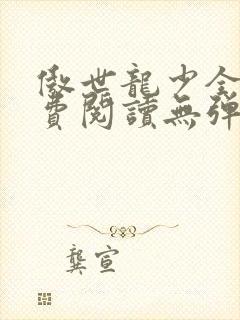 傲世龍少全
費閱讀無彈
龔宣